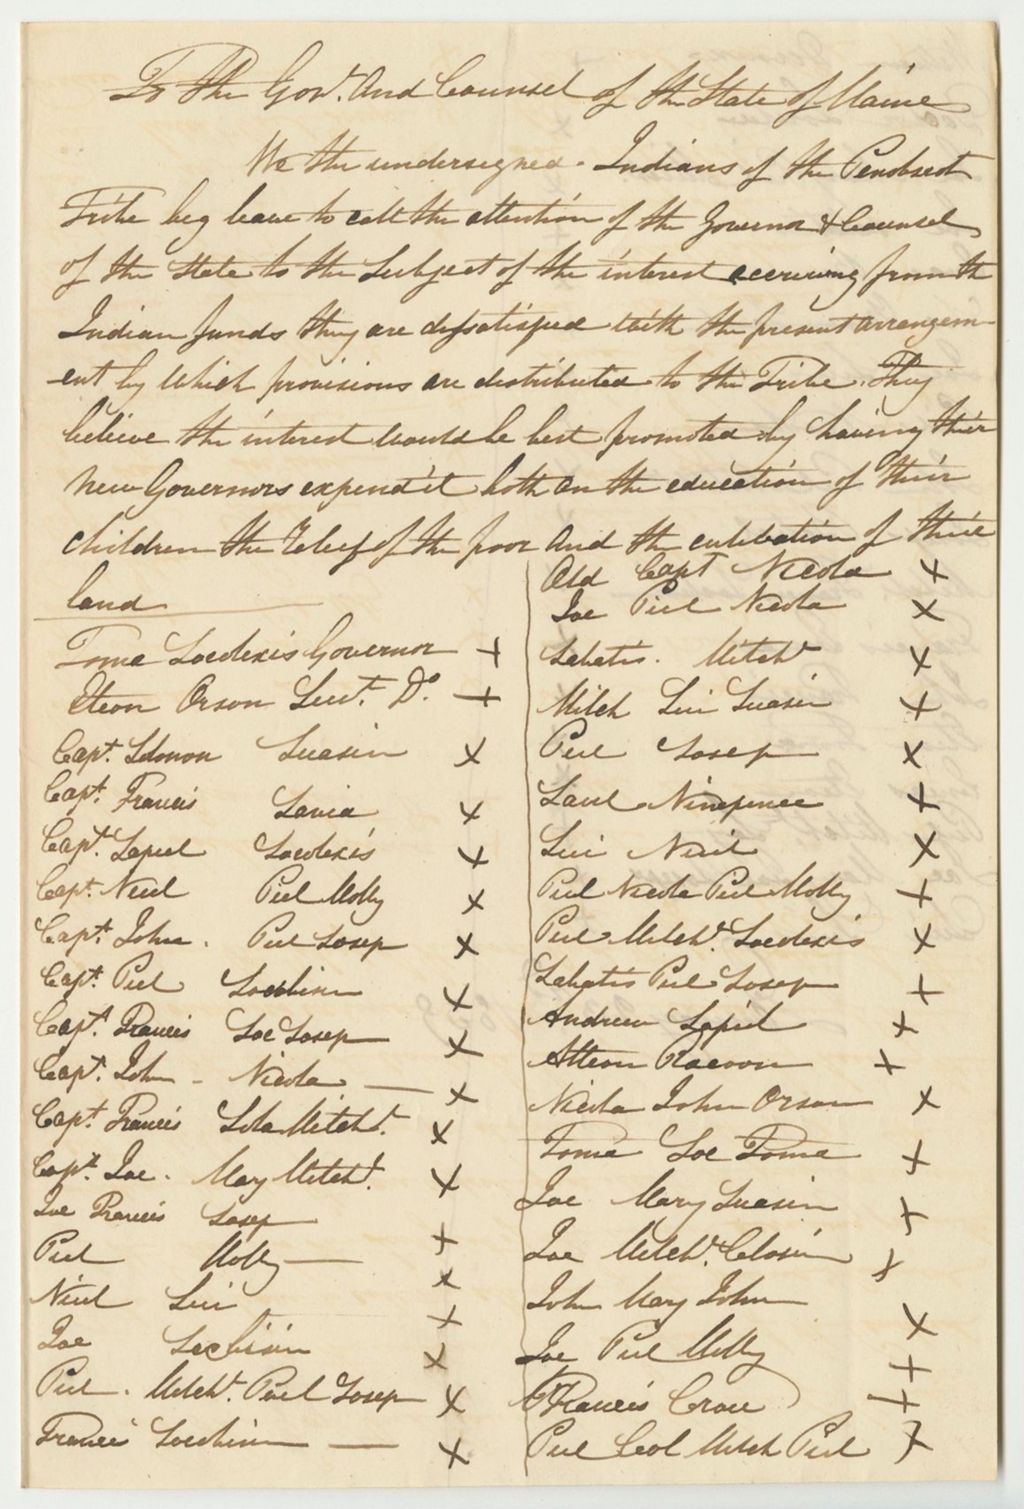 To The Gov.r And Counsel of the State of Maine
We the undersigned Indians of the Penobscot
Tribe beg leave to call the attention of the Governor & Counsel
of the State to the Subject of the interest accruing from the
Indian funds they are dissatisfied with the present arrangem-
ent by which provisions are distributed to the Tribe. They
believe the interest would be best promoted by having their
new Governors expend it both on the education of their
children the relief of the poor And the cultivation of their
land
Toma Socclexis Governor +
Ateon Orson Lieut. Do. +
Capt. Solomon Suasin x
Capt. Francis x
Capt. Sapiel Socclexis x
Capt. Niel Piel Molly x
Capt. John. Piel Sosep x
Capt. Piel x
Capt. Francis Soc Sosep x
Capt. John - Nicola x
Capt. Francis Sola Mitchl. x
Capt. Joe. Mary Mitchl. x
Joe Francis Sosep
Piel Molly +
Niel x
Joe +
Piel. Mitchl. Piel Sosep x
Francis x
Old Capt Nicola x
Joe Piel Nicola x
Sabatis. Mitchl x
Mitch Suasin x
Piel Sosep x
Saul Ninepence +
Niel x
Piel Nicola Piel Molly +
Piel Mitchl. Socclexis x
Sabatis Piel Sosep +
Andrew Sapiel x
Atteon Racoon x
Nicola John Orson x
Toma Soc Toma +
Joe Mary Suasin +
Joe Mitchl. x
John Mary John
Joe Piel Molly +
Francis Crow +
Piel Mitch Piel x